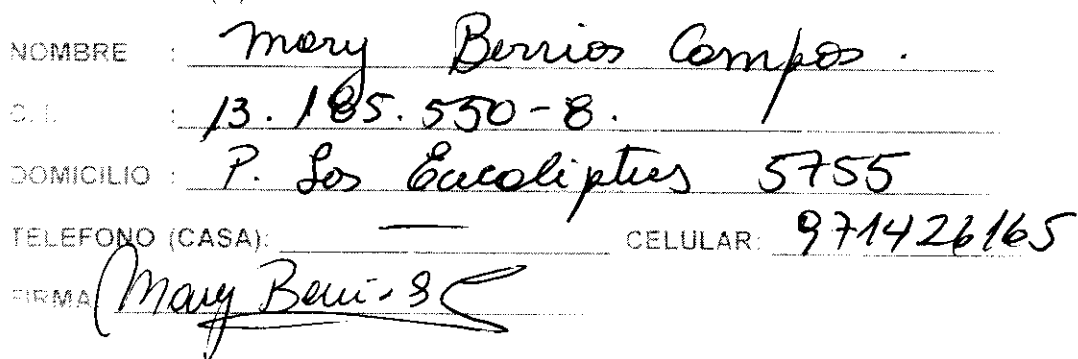 NOMBRE : Mary Berrios Campos.
C. I. : 13.185.550-8.
DOMICILIO : P. Los Eucaliptus 5755
TELEFONO (CASA): — CELULAR: 971426165
FIRMA Mary Berrios C